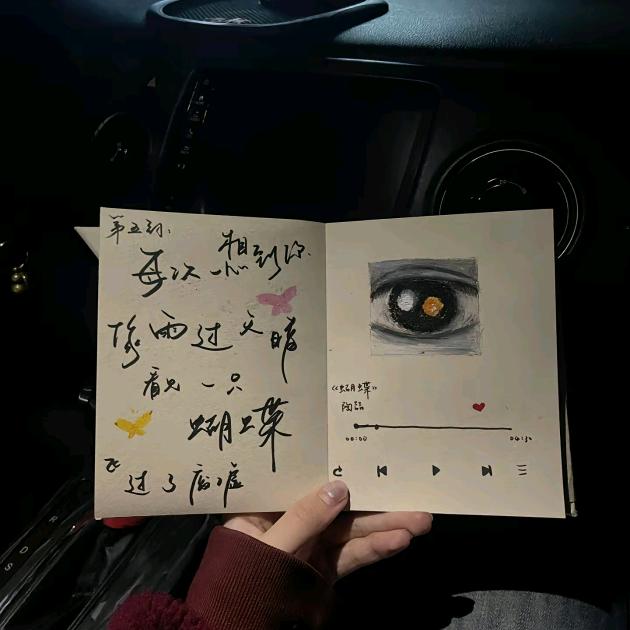 第五封:
每次一想到你
像雨过天晴
看见一只
蝴蝶
飞过了废墟
《蝴蝶》
陶喆
00:00
R
D
S